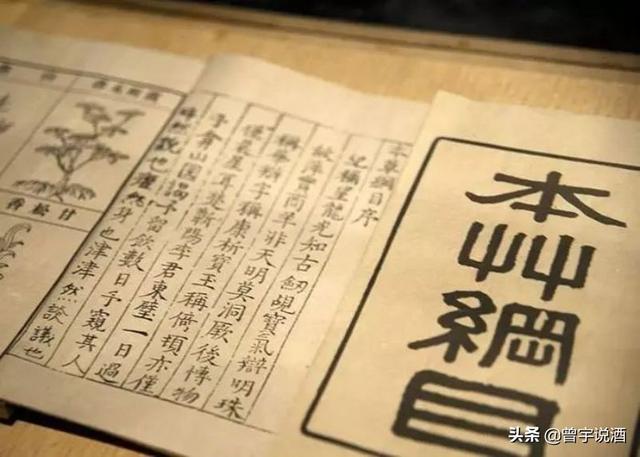 本艸綱目
本草綱目序
紀稱望龍光知古劒覘寶氣辯明珠
故萍實商羊非天明莫洞厥後博物
稱華辯字稱康析寶玉稱倚頓亦僅
僅晨星耳楚蘄陽李君東壁一日過
予弇山園謁予留飲數日予窺其人
睟然貌也癯然身也津津然談議也
甘松香
头条 @曾宇说酒